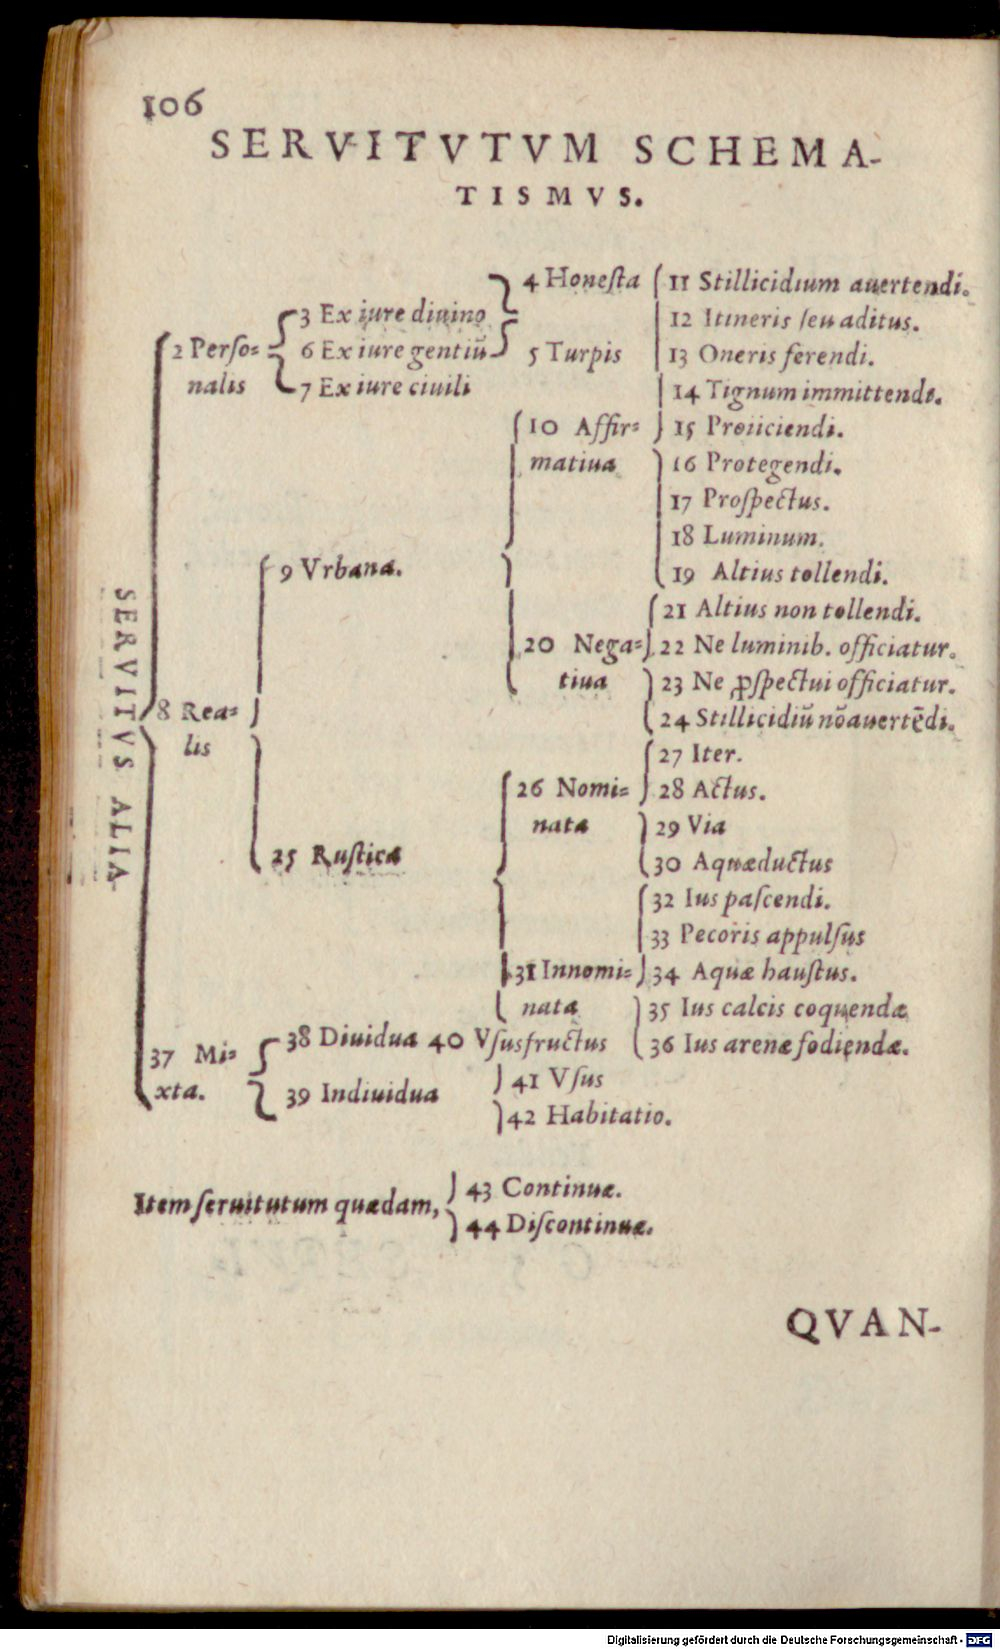 106
SERVITVTVM SCHEMA-
TISMVS.
SERVITVS ALIA
2 Perſo=
nalis
3 Ex iure diuino
6 Ex iure gentiū
7 Ex iure ciuili
4 Honeſta
5 Turpis
8 Rea=
lis
9 Vrbana.
10 Affir=
matiua
11 Stillicidium auertendi.
12 Itineris ſeu aditus.
13 Oneris ferendi.
14 Tignum immittendi.
15 Proiiciendi.
16 Protegendi.
17 Proſpectus.
18 Luminum.
19 Altius tollendi.
20 Nega=
tiua
21 Altius non tollendi.
22 Ne luminib. officiatur.
23 Ne ꝓſpectui officiatur.
24 Stillicidiū nō auertēdi.
25 Ruſtica
26 Nomi=
nata
27 Iter.
28 Actus.
29 Via
30 Aquæductus
31 Innomi=
nata
32 Ius paſcendi.
33 Pecoris appulſus
34 Aquæ hauſtus.
35 Ius calcis coquendæ
36 Ius arenæ fodiendæ.
37 Mi=
xta.
38 Diuidua 40 Vſusfructus
39 Indiuidua
41 Vſus
42 Habitatio.
Item ſeruitutum quædam,
43 Continuæ.
44 Diſcontinuæ.
QVAN-
Digitalisierung gefördert durch die Deutsche Forschungsgemeinschaft - DFG